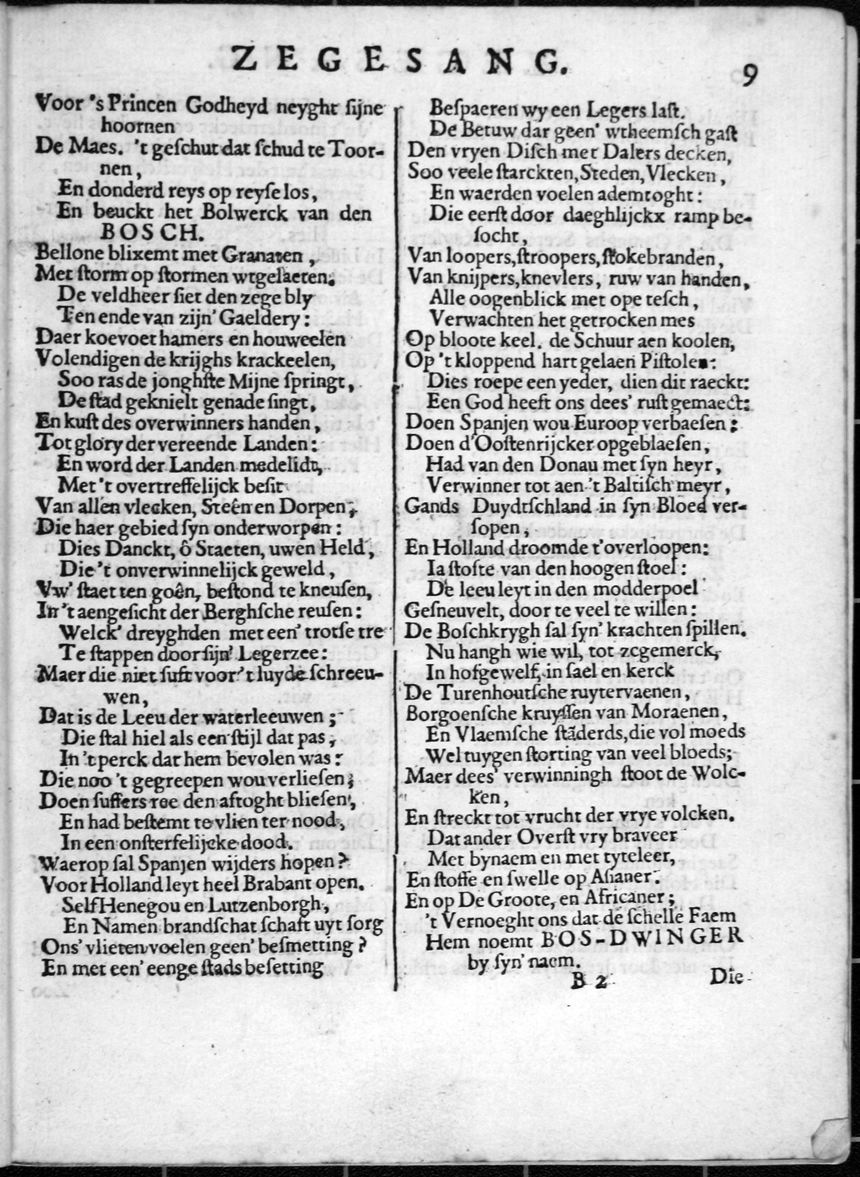 ZEGESANG. 9
Voor 's Princen Godheyd neyght ſijne
hoornen
De Maes. 't geſchut dat ſchud te Toor-
nen,
En donderd reys op reyſe los,
En beuckt het Bolwerck van den
BOSCH.
Bellone blixemt met Granaten,
Met ſtorm op ſtormen wtgelaeten.
De veldheer ſiet den zege bly
Ten ende van zijn' Gaeldery:
Daer koevoet hamers en houweelen
Volendigen de krijghs krackeelen,
Soo ras de jonghſte Mijne ſpringt,
De ſtad geknielt genade ſingt,
En kuſt des overwinners handen,
Tot glory der vereende Landen:
En word der Landen medelidt,
Met 't overtreffelijck beſit
Van allen vlecken, Steên en Dorpen,
Die haer gebied ſyn onderworpen:
Dies Danckt, ô Staeten, uwen Held,
Die 't onverwinnelijck geweld,
Vw' ſtaet ten goên, beſtond te kneuſen,
In 't aengeſicht der Berghſche reuſen:
Welck' dreyghden met een' trotſe tre
Te ſtappen door ſijn' Legerzee:
Maer die niet ſuft voor 't luyde ſchreeu-
wen,
Dat is de Leeu der waterleeuwen;
Die ſtal hiel als een ſtijl dat pas,
In 't perck dat hem bevolen was:
Die noo 't gegreepen wou verlieſen;
Doen ſuffers toe den aftoght blieſen,
En had beſtemt te vlien ter nood,
In een onſterfelijcke dood.
Waerop ſal Spanjen wijders hopen?
Voor Holland leyt heel Brabant open.
Self Henegou en Lutzenborgh,
En Namen brandſchat ſchaft uyt ſorg
Ons' vlieten voelen geen' beſmetting?
En met een' eenge ſtads beſetting
Beſpaeren wy een Legers laſt.
De Betuw dar geen' wtheemſch gaſt
Den vryen Diſch met Dalers decken,
Soo veele ſtarckten, Steden, Vlecken,
En waerden voelen ademtoght:
Die eerſt door daeghlijckx ramp be-
ſocht,
Van loopers, ſtroopers, ſtokebranden,
Van knijpers, knevlers, ruw van handen,
Alle oogenblick met ope teſch,
Verwachten het getrocken mes
Op bloote keel. de Schuur aen koolen,
Op 't kloppend hart gelaen Piſtolen:
Dies roepe een yeder, dien dit raeckt:
Een God heeft ons dees' ruſt gemaeckt:
Doen Spanjen wou Euroop verbaeſen;
Doen d'Ooſtenrijcker opgeblaeſen,
Had van den Donau met ſyn heyr,
Verwinner tot aen 't Baltiſch meyr,
Gands Duydtſchland in ſyn Bloed ver-
ſopen,
En Holland droomde t'overloopen:
Ia ſtofte van den hoogen ſtoel:
De leeu leyt in den modderpoel
Geſneuvelt, door te veel te willen:
De Boſchkrygh ſal ſyn' krachten ſpillen.
Nu hangh wie wil, tot zegemerck,
In hofgewelf, in ſael en kerck
De Turenhoutſche ruytervaenen,
Borgoenſche kruyſſen van Moraenen,
En Vlaemſche ſtāderds, die vol moeds
Wel tuygen ſtorting van veel bloeds;
Maer dees' verwinningh ſtoot de Wolc-
ken,
En ſtreckt tot vrucht der vrye volcken.
Dat ander Overſt vry braveer
Met bynaem en met tyteleer,
En ſtoffe en ſwelle op Aſianer.
En op De Groote, en Africaner;
't Vernoeght ons dat de ſchelle Faem
Hem noemt BOS-DWINGER
by ſyn' naem.
B 2 Die